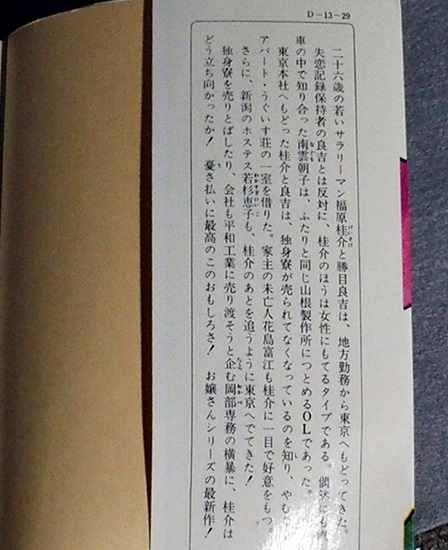 D-13-29
二十六歳の若いサラリーマン福原桂介と勝目良吉は、地方勤務から東京へもどってきた
失恋記録保持者の良吉とは反対に、桂介のほうは女性にもてるタイプである。偶然にも汽
車の中で知り合った南雲朝子は、ふたりと同じ山根製作所につとめるOLであった。
東京本社へもどった桂介と良吉は、独身寮が売られてなくなっているのを知り、やむ
アパート・うぐいす荘の一室を借りた。家主の未亡人花島富江も桂介に一目で好意をもつ
さらに、新潟のホステス若杉恵子も、桂介のあとを追うように東京へでてきた!
独身寮を売りとばしたり、会社も平和工業に売り渡そうと企む岡部専務の横暴に、桂介は
どう立ち向かったか! 憂さ払いに最高のこのおもしろさ! お嬢さんシリーズの最新作!